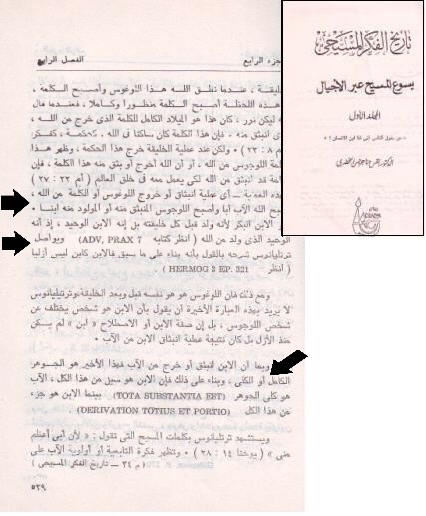 تاريخ الفكر المسيحي
يسوع المسيح عبر الأجيال
المجلد الأول
الدكتور القس
الفصل الرابع
جزء الرابع
خليقة ، عندما نطق الله هذا اللوغوس وأصبح الكلمة ،
هذه اللحظة أصبح الكلمة منظورا وكاملا ، فعندما قال
ليكن نور ، كان هذا هو الميلاد الكامل للكلمة الذى خرج من الله ،
انبثق منه ، فإن هذا الكلمة كان ساكنا فى الله كحكمة ، كفكر
م ٨ : ٢٣) ، ولكن عند عملية الخليقة خرج هذا الحكمة ، وظهر هذا
اللوجوس من الله ، أو أن الله أخرج أو بثق منه هذا الكلمة ، فإن
قد انبثق من الله لكى يعمل معه فى خلق العالم ( أم ٢٢ : ٢٧ )
هذه العملية — أى عملية انبثاق أو خروج اللوغوس أو الكلمة من الله ،
أصبح الله الآب أبا وأصبح اللوجوس المنبثق منه أو المولود منه ابنا ،
الابن البكر لأنه ولد قبل كل خليقته بل إنه الابن الوحيد ، إذ أنه
الوحيد الذى ولد من الله ( انظر كتابه ADV, PRAX 7 ) ويواصل
ترتليانوس شرحه بالقول بأنه بناء على ما سبق فالابن كابن ليس أزليا
( انظر HERMOG 3 EP. 321 ) .
ومع ذلك فإن اللوغوس هو هو نفسه قبل وبعد الخليقة وترتليانوس
لا يريد بهذه العبارة الأخيرة أن يقول بأن الابن هو شخص يختلف عن
شخص اللوجوس ، بل إن صفة الابن أو الاصطلاح « ابن » لم يكن
منذ الأزل بل كان نتيجة عملية انبثاق الابن من الآب ،
وبما أن الابن انبثق أو خرج من الآب فهذا الأخير هو الجوهر
الكامل أو الكلى ، وبناء على ذلك فإن الابن هو سيل من هذا الكل ، الآب
هو كلى الجوهر (TOTA SUBSTANTIA EST) بينما الابن هو جزء
من هذا الكل (DERIVATION TOTIUS ET PORTIO) .
ويستشهد ترتليانوس بكلمات المسيح التى تقول : « لأن أبى أعظم
منى » ( يوحنا ١٤ : ٢٨ ) ، وتظهر فكرة التابعية أو أولوية الآب على
( م ٣٤ — تاريخ الفكر المسيحى )
٥٢٩